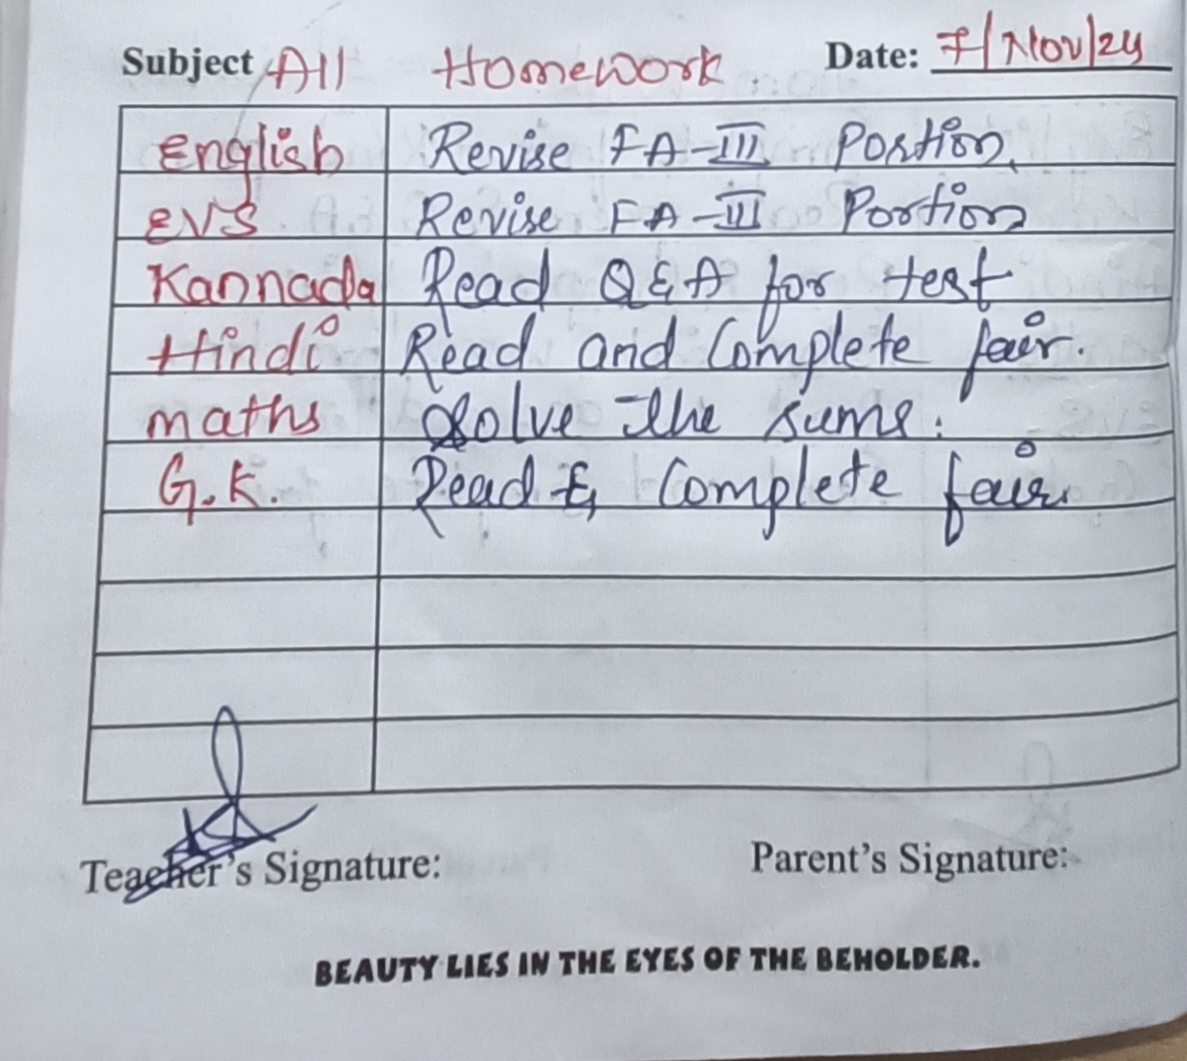 Subject All Homework Date: 7/Nov/24
English Revise FA-III Portion.
EVS Revise FA-III Portion
Kannada Read Q&A for test
Hindi Read and Complete fair.
maths Solve the sums.
G.K. Read & Complete fair.
Teacher's Signature: Parent's Signature:
BEAUTY LIES IN THE EYES OF THE BEHOLDER.